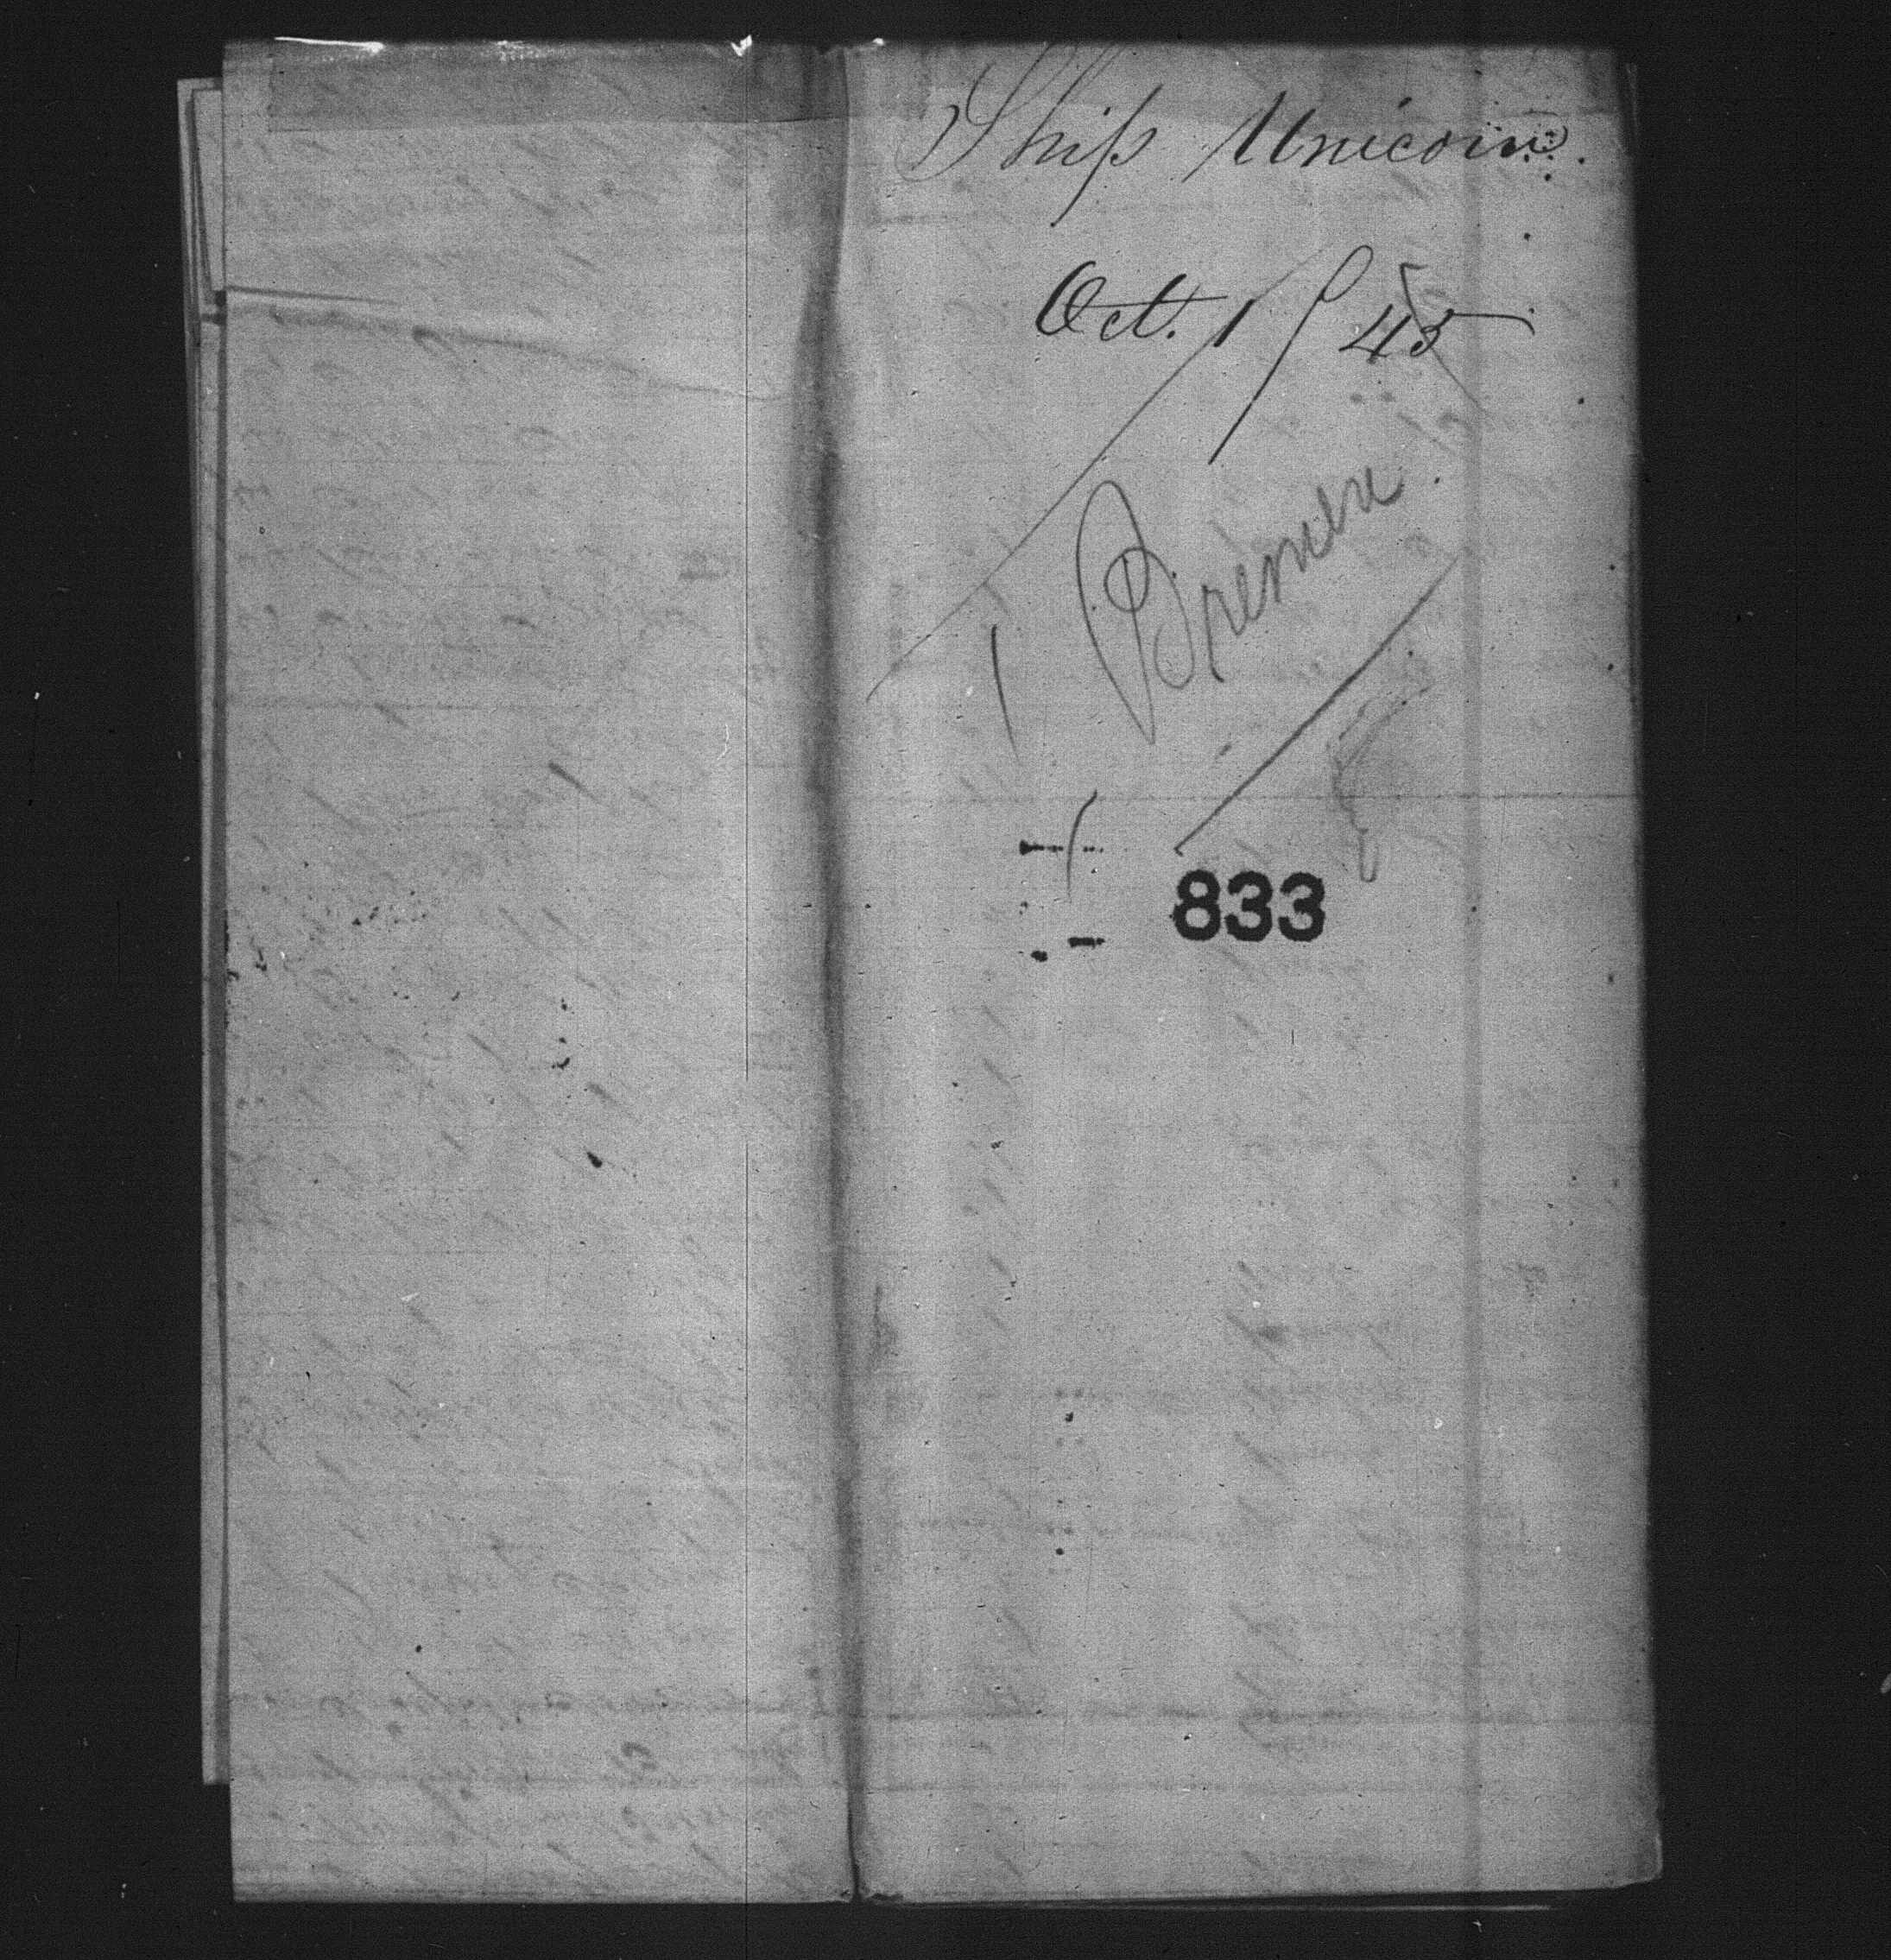 Ship Unicorn.
Oct. 1 / 45
Bremen.
833